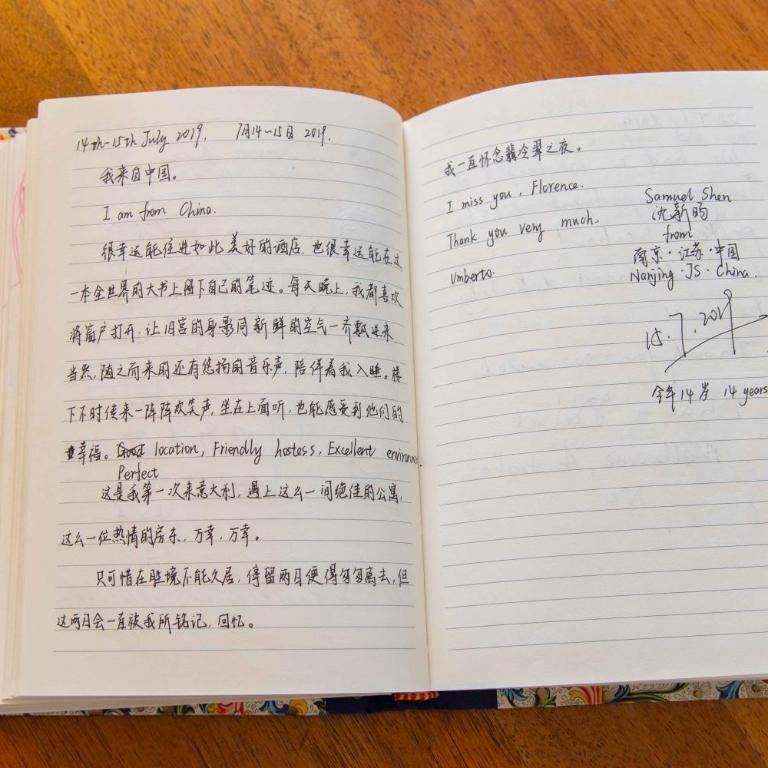 14th-15th July 2019. 7月14~15日 2019.
我来自中国。
I am from China.
很幸运能住进如此美好的酒店,也很幸运能在这
一本全世界的大书上留下自己的笔迹。每天晚上,我都喜欢
将窗户打开,让旧宫的身影同新鲜的空气一齐飘进来
当然,随之而来的还有悠扬的音乐声,陪伴着我入睡。楼
下不时传来一阵阵欢笑声,坐在上面听,也能感受到他们的
幸福。Good location, Friendly hostess, Excellent environment.
Perfect
这是我第一次来意大利,遇上这么一间绝佳的公寓,
这么一位热情的房东,万幸,万幸。
只可惜在胜境不能久居,停留两日便得匆匆离去,但
这两日会一直被我所铭记,回忆。
我一直怀念翡冷翠之夜。
I miss you, Florence.
Thank you very much.
Umberto.
Samuel Shen
沈新
from
南京·江苏·中国
Nanjing·JS·China.
15.7.2019
今年14岁 14 years